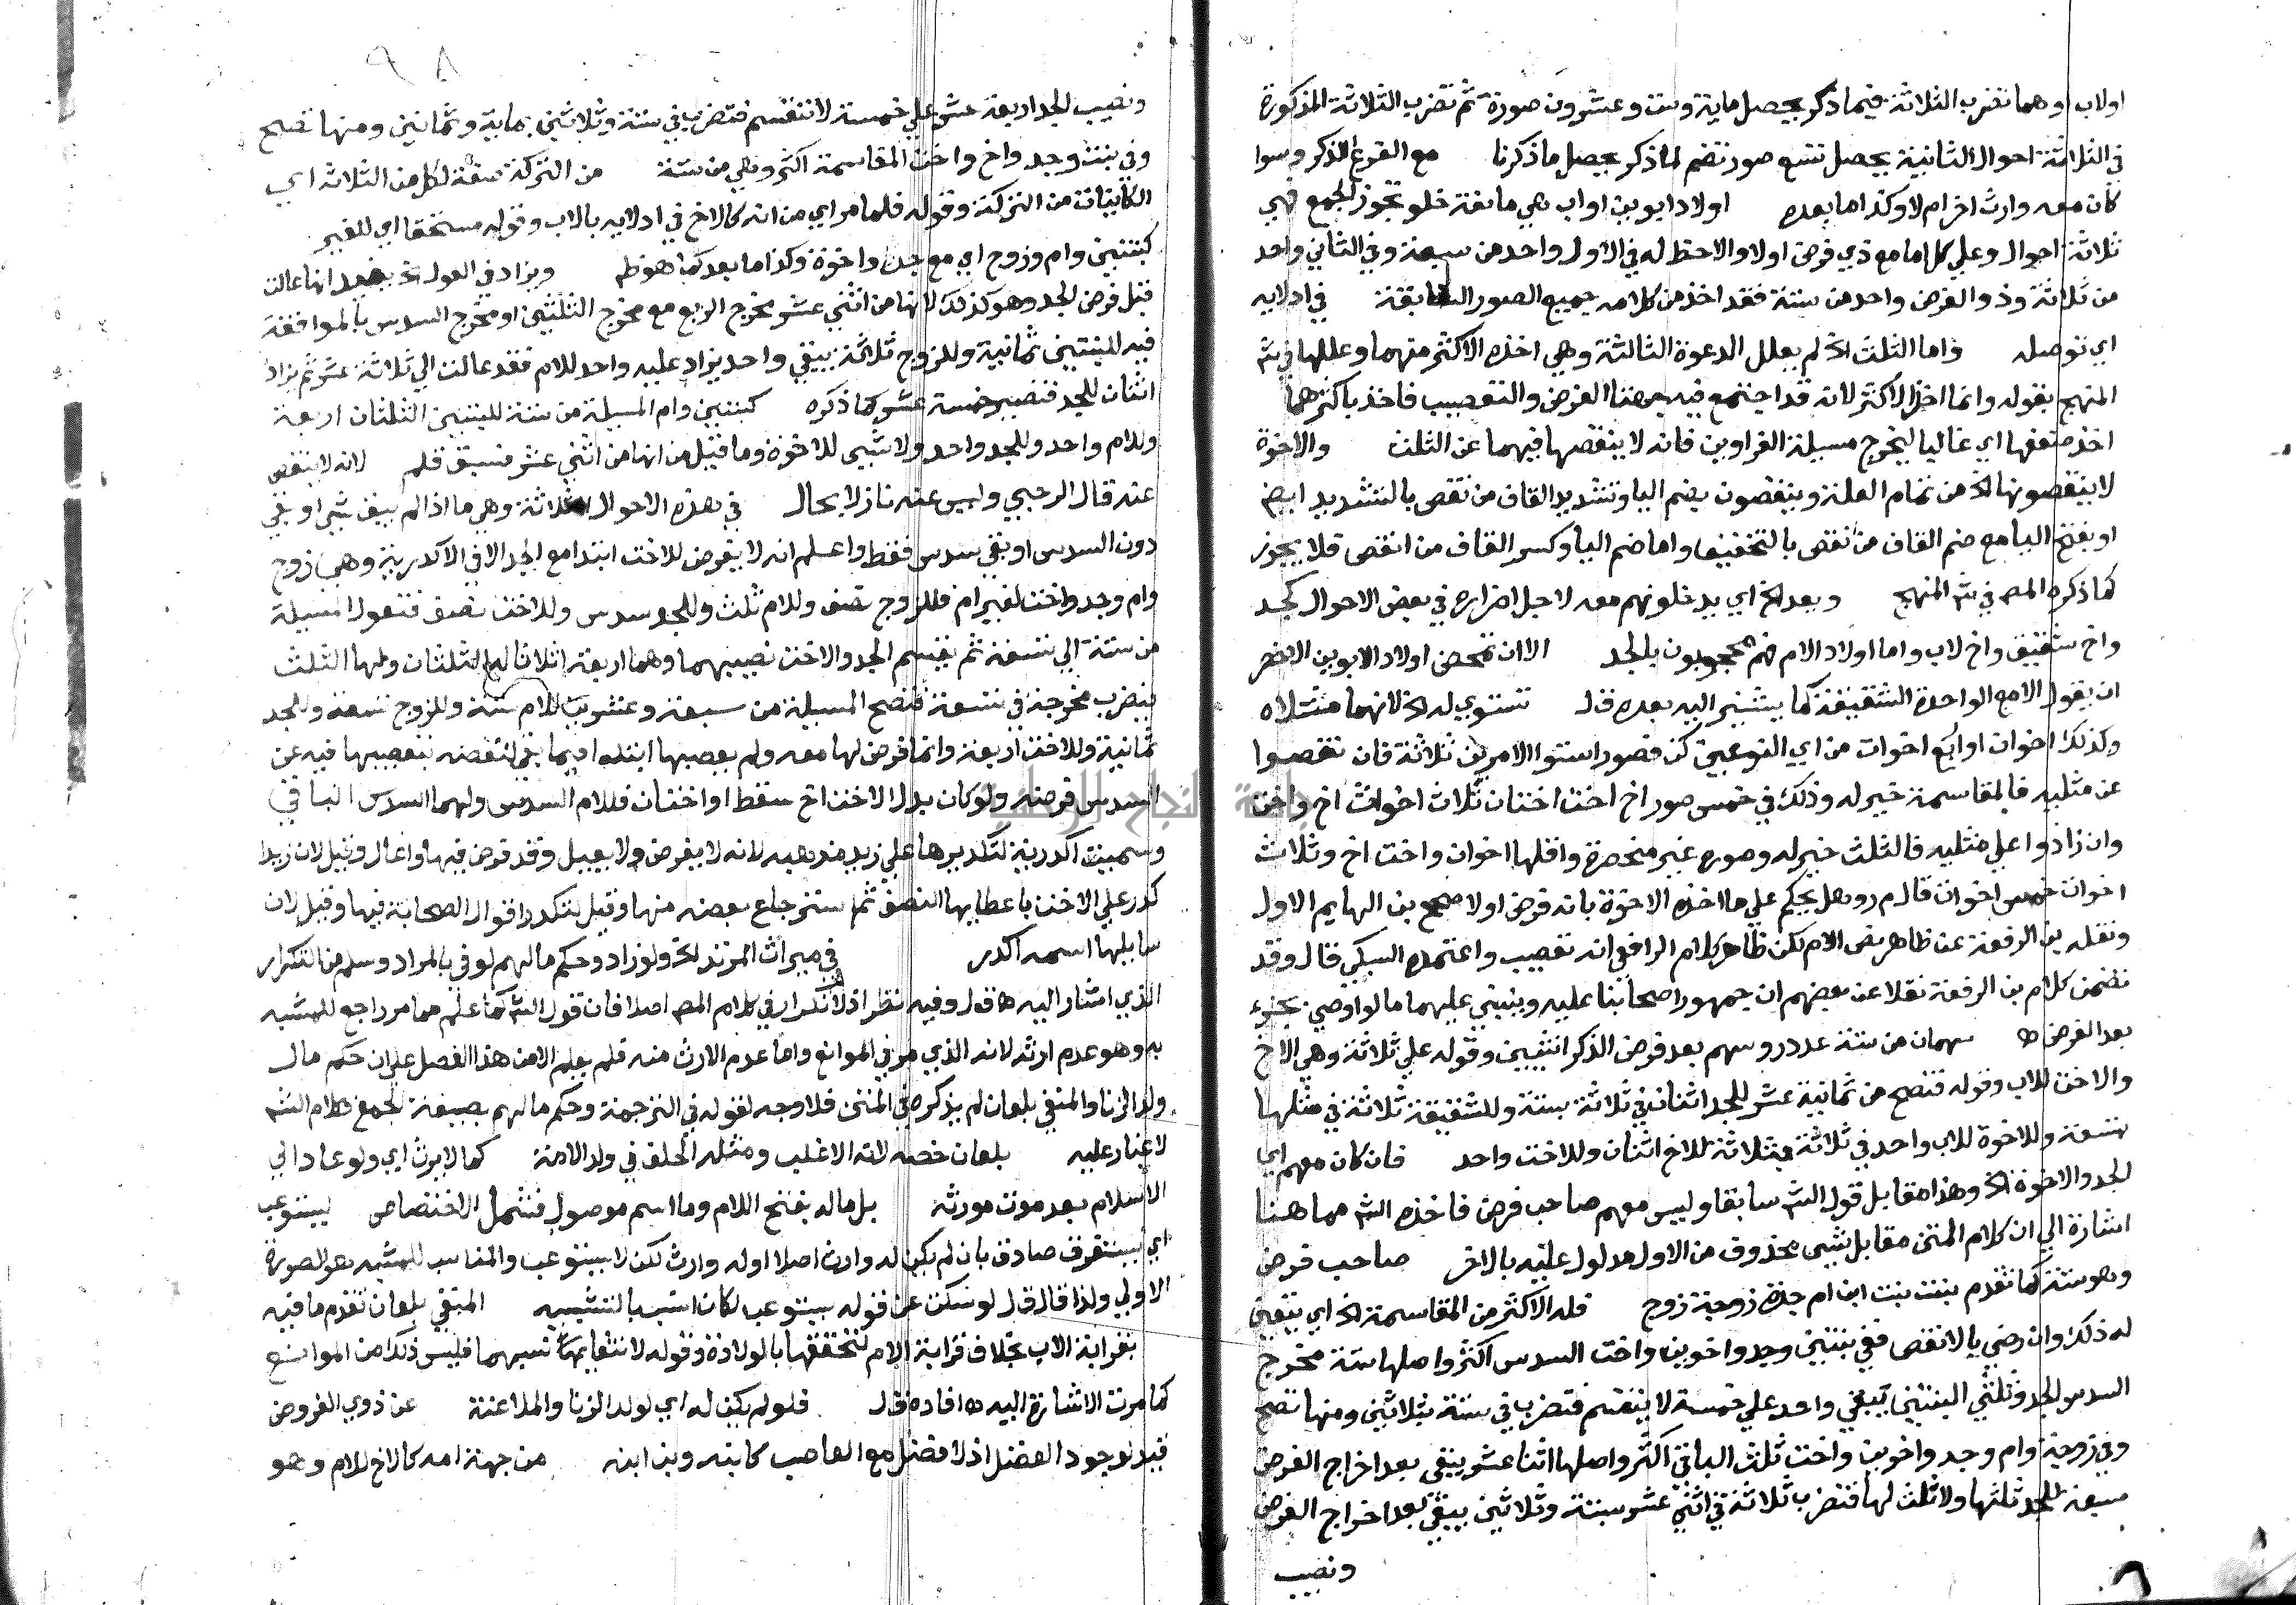 اولاب او هما تضرب الثلاثة فيما ذكر يحصل ماية وست وعشرون صورة ثم تضرب الثلاثة المذكورة
في الثلاثة احوال الثانية يحصل تسع صور تضم لما ذكر يحصل ما ذكرنا مع الفرع الذكر وسوا
كان معه وارث اخر ام لا وكذا ما بعده اولاد ابوين او اب هي مانعة خلو تجوز الجمع فهي
ثلاثة احوال وعلي كل اما مع ذي فرض اولا والاحظ له في الاول واحد من سبعة وفي الثاني واحد
من ثلاثة وذو الفرض واحد من ستة فقد اخذ من كلامه جميع الصور السابقة في ادلايه
اي توصله واما الثلث الخ لم يعلل الدعوة الثالثة وهي اخذه الاكثر منهما وعللها في شر
المنهج بقوله وانما اخذ الاكثر لانه قد اجتمع فيه جهتا الفرض والتعصيب فاخذ باكثرهما
اخذ ضعفها اي غالبا ليخرج مسيلة الغراوين فانه لا ينقصها فيهما عن الثلث والاخوة
لا ينقصونها الخ من تمام العلة وينقصون بضم اليا وتشديد القاف من نقص بالتشديد ايضا
او بفتح اليا مع ضم القاف من نقص بالتخفيف واما ضم اليا وكسر القاف من انقص فلا يجوز
كما ذكره المص في شر المنهج ويعد الخ اي يدخلونهم معه لاجل اضراره في بعض الاحوال كجد
واخ شقيق واخ لاب واما اولاد الام فهم محجوبون بالجد الا ان تمحض اولاد الابوين الاخصر
ان يقول الا مع الواحدة الشقيقة كما يشير اليه بعده قل تستوي له الخ لانهما مثلاه
وكذلك اخوان او اربع اخوات من اي النوعين كن فصور استوا الامرين ثلاثة فان نقصوا
عن مثليه فالمقاسمة خير له وذلك في خمس صور اخ اخت اختان ثلاث اخوات اخ واخت
وان زادوا علي مثليه فالثلث خير له وصوره غير منحصرة واقلها اخوان واخت اخ وثلاث
اخوات خمس اخوات قال م ر وهل يحكم علي ما اخذه الاخوة بانه فرض اولا صحح بن الهايم الاول
ونقله بن الرفعة عن ظاهر نص الام لكن ظاهر كلام الرافعي انه تعصيب واعتمده السبكي قال وقد
تضمن كلام بن الرفعة نقلا عن بعضهم ان جمهور اصحابنا عليه وينبني عليهما ما لو اوصي بجزء
بعد الفرض ط سهمان من ستة عدد روسهم بعد فرض الذكر انثيين وقوله علي ثلاثة وهي الاخ
والاخت للاب وقوله فتصح من ثمانية عشر للجد اثنان في ثلاثة بستة وللشقيقة ثلاثة في مثلها
بتسعة وللاخوة للاب واحد في ثلاثة بثلاثة للاخ اثنان وللاخت واحد فان كان معهم اي
الجد والاخوة الخ وهذا مقابل قول الشر سابقا وليس معهم صاحب فرض فاخذه الشر مما هنا
اشارة الي ان كلام المتن مقابل بشي محذوف من الاول مدلول عليه بالاخر صاحب فرض
وهو ستة كما تقدم بنت بنت ابن ام جدة زوجة زوج فله الاكثر من المقاسمة الخ اي يتعين
له ذلك وان رضي بالانقص ففي بنتين وجد واخوين واخت السدس اكثر واصلها ستة مخرج
السدس للجد وثلثي البنتين يبقي واحد علي خمسة لا ينقسم فتضرب في ستة بثلاثين ومنها تصح
وفي زوجة وام وجد واخوين واخت ثلث الباقي اكثر واصلها اثنا عشر يبقي بعد اخراج الفرض
سبعة للجد ثلثها ولا ثلث لها فتضرب ثلاثة في اثني عشر بستة وثلاثين يبقي بعد اخراج الفرض
ونصيب
ونصيب الجد اربعة عشر علي خمسة لا تنقسم فتضرب في ستة وثلاثين بماية وثمانين ومنها تصح
وفي بنت وجد واخ واخت المقاسمة اكثر وهي من ستة من التركة صفة لكل من الثلاثة اي
الكاينات من التركة وقوله فلما مر اي من انه كالاخ في ادلايه بالاب وقوله مستحقا اي للغير
كبنتين وام وزوج اي مع جد واخوة وكذا ما بعد كما هو ظم ويزاد في العول الخ يفيد انها عالت
قبل فرض الجد وهو كذلك لانها من اثني عشر مخرج الربع مع مخرج الثلثين او مخرج السدس بالموافقة
فيه للبنتين ثمانية وللزوج ثلاثة يبقي واحد يزاد عليه واحد للام فقد عالت الي ثلاثة عشر ثم يزاد
اثنان للجد فتصير خمسة عشر كما ذكره كبنتين وام المسيلة من ستة للبنتين الثلثان اربعة
وللام واحد وللجد واحد ولا شي للاخوة وما قيل من انها من اثني عشر فسبق قلم لانه لا ينقص
عنه قال الرحبي وليس عنه نازلا بحال في هذه الاحوال الثلاثة وهي ما اذا لم يبق شي او بقي
دون السدس او بقي سدس فقط واعلم انه لا يفرض للاخت ابتدا مع الجد الا في الاكدرية وهي زوج
وام وجد واخت لغير ام فللزوج نصف وللام ثلث وللجد سدس وللاخت نصف فتعول المسيلة
من ستة الي تسعة ثم يقسم الجد والاخت نصيبهما وهما اربعة اثلاثا له الثلثان ولها الثلث
فيضرب مخرجه في تسعة فتصح المسيلة من سبعة وعشرين للام ستة وللزوج تسعة وللجد
ثمانية وللاخت اربعة وانما فرض لها معه ولم يعصبها ابتدا فيما بقي لنقصه بتعصيبها فيه عن
السدس فرضه ولو كان بدل الاخت اخ سقط او اختان فللام السدس ولهما السدس الباقي
وسميت اكدرية لتكديرها علي زيد مذهبه لانه لا يفرض ولا يعيل وقد فرض فيها واعال وقيل لان زيدا
كدر علي الاخت باعطايها النصف ثم استرجاع بعضه منها وقيل لتكدر اقوال الصحابة فيها وقيل لان
سايلها اسمه اكدر في ميراث المرتد الخ ولو زاد وحكم ما لهم لوفي بالمراد وسلم من التكرار
الذي اشار اليه ط قول وفيه نظر اذ لا تكرار في كلام المص اصلا فان قول الشر كما علم مما مر راجع للمشبه
به وهو عدم ارثه لانه الذي مر في الموانع واما عدم الارث منه فلم يعلم الا من هذا الفصل علي ان حكم مال
ولد الزنا والمنفي بلعان لم يذكره في المتن فلا وجه لقوله في الترجمة وحكم ما لهم بصيغة الجمع فكلام الشر
لا غبار عليه بلعان خصه لانه الاغلب ومثله الحلف في ولد الامة كما لا يرث اي ولو عاد الي
الاسلام بعد موت مورثه بل ماله بفتح اللام وما اسم موصول فتشمل الاختصاص يستوعب
اي يستغرق صادق بان لم يكن له وارث اصلا او له وارث لكن لا يستوعب والمناسب للمشبه هو الصورة
الاولي ولذا قال قل لو سكت عن قوله يستوعب لكان انسب بالتشبيه المنفي بلعان تقدم ما فيه
بقرابة الاب بخلاف قرابة الام لتحققها بالولادة وقوله لانتفايها نسبهما فليس ذلك من الموانع
كما مرت الاشارة اليه ط افاده قل فلو لم يكن له اي لولد الزنا والملاعنة عن ذوي الفروض
قيد لوجود الفضل اذ لا فضل مع العاصب كابنه وبن ابنه من جهة امه كالاخ للام وهو